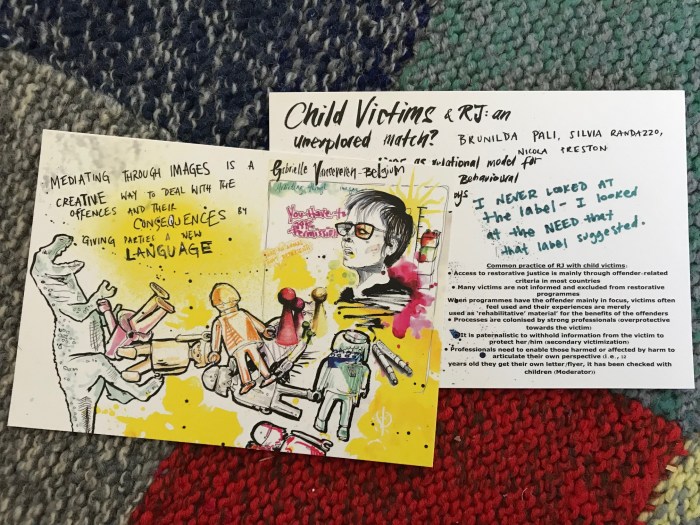 MEDIATING THROUGH IMAGES IS A
CREATIVE WAY TO DEAL WITH THE
OFFENCES AND THEIR
CONSEQUENCES BY
GIVING PARTIES A NEW
LANGUAGE
Gabrielle Vanseveren-Belgium
You Have to
ask
Permission
Child Victims & RJ: an
unexplored match?
BRUNILDA PALI, SILVIA RANDAZZO,
NICOLA PRESTON
as relational model for
Behavioural
I NEVER LOOKED AT
the label - I looked
at the NEED that
that label suggested.
Common practice of RJ with child victims:
• Access to restorative justice is mainly through offender-related
criteria in most countries
• Many victims are not informed and excluded from restorative
programmes
When programmes have the offender mainly in focus, victims often
feel used and their experiences are merely
used as 'rehabilitative' material' for the benefits of the offenders
• Processes are colonised by strong professionals (overprotective
towards the victim)
It is paternalistic to withhold information from the victim to
protect her/him (secondary victimization)
• Professionals need to enable those harmed or affected by harm to
articulate their own perspective (i.e., 12
years old they get their own letter/flyer, it has been checked with
children (Moderator))